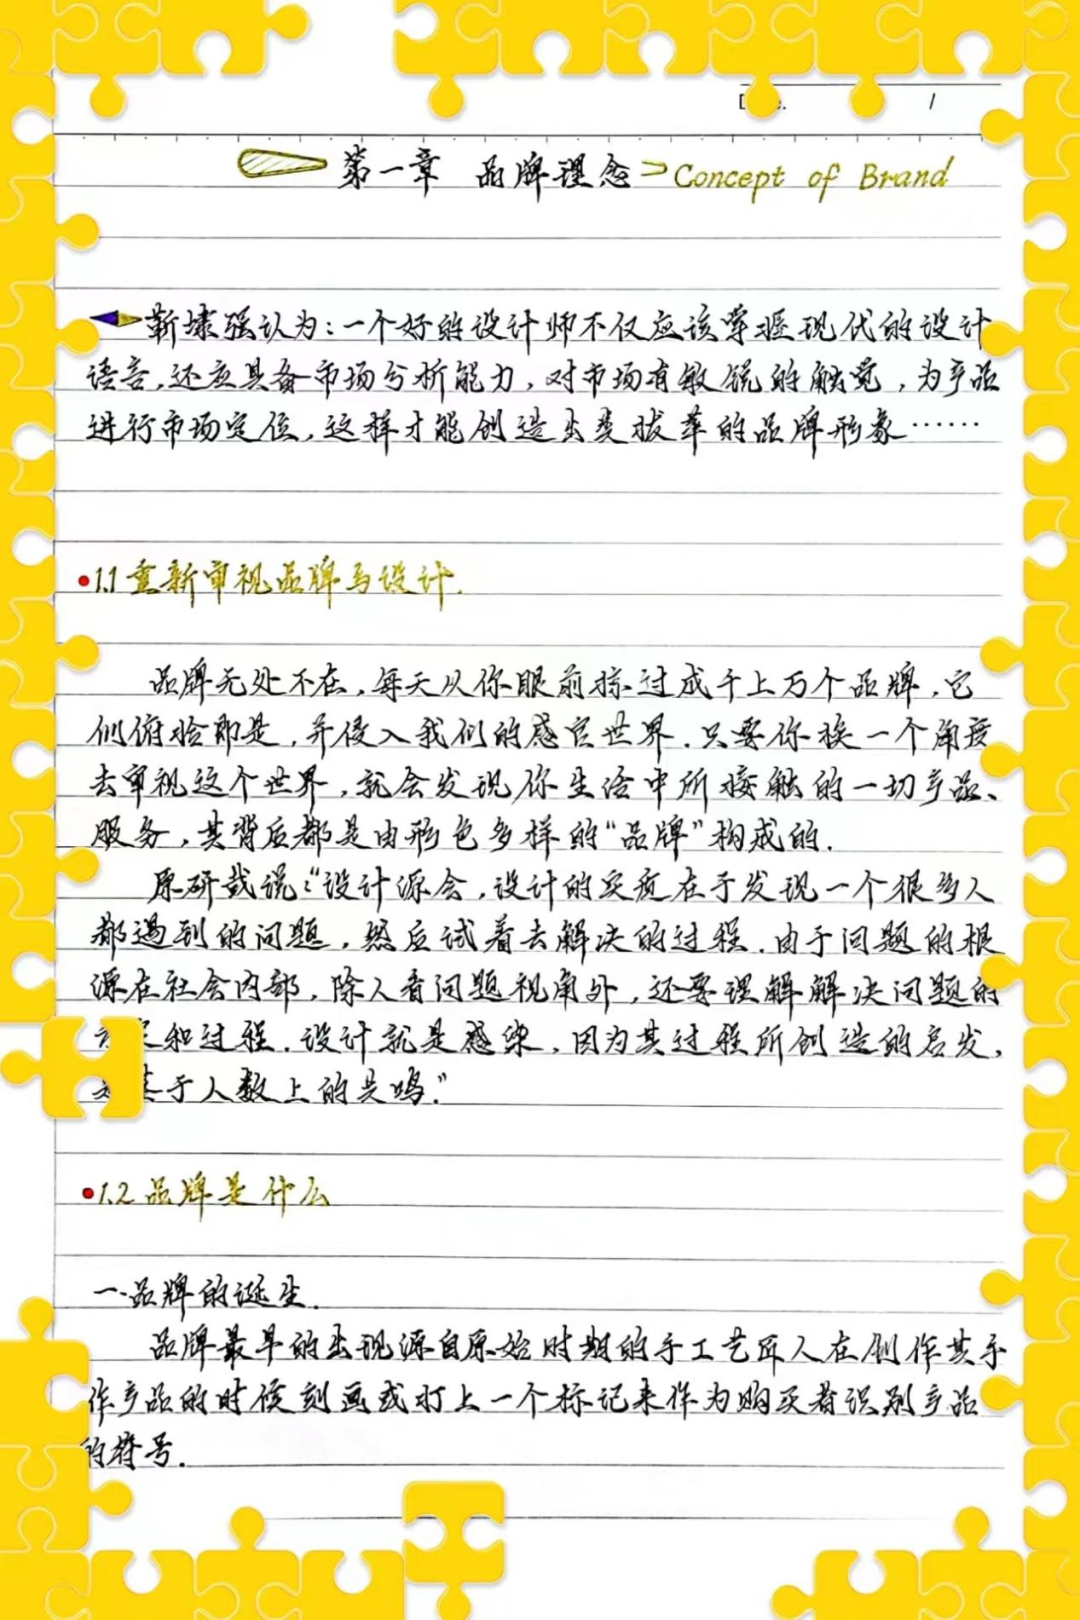 第一章 品牌理念 Concept of Brand
靳埭强认为：一个好的设计师不仅应该掌握现代的设计
语言，还应具备市场分析能力，对市场有敏锐的触觉，为产品
进行市场定位，这样才能创造出类拔萃的品牌形象……
1.1 重新审视品牌与设计.
品牌无处不在，每天从你眼前掠过成千上万个品牌，它
们俯拾即是，并侵入我们的感官世界.只要你换一个角度
去审视这个世界，就会发现你生活中所接触的一切产品、
服务，其背后都是由形色多样的“品牌”构成的.
原研哉说：“设计源会，设计的实质在于发现一个很多人
都遇到的问题，然后试着去解决的过程.由于问题的根
源在社会内部，除人看问题视角外，还要理解解决问题的
和过程.设计就是感染，因为其过程所创造的启发，
基于人数上的共鸣.”
1.2 品牌是什么
一.品牌的诞生.
品牌最早的出现源自原始时期的手工艺匠人在创作其手
作产品的时候刻画或打上一个标记来作为购买者识别产品
的符号.